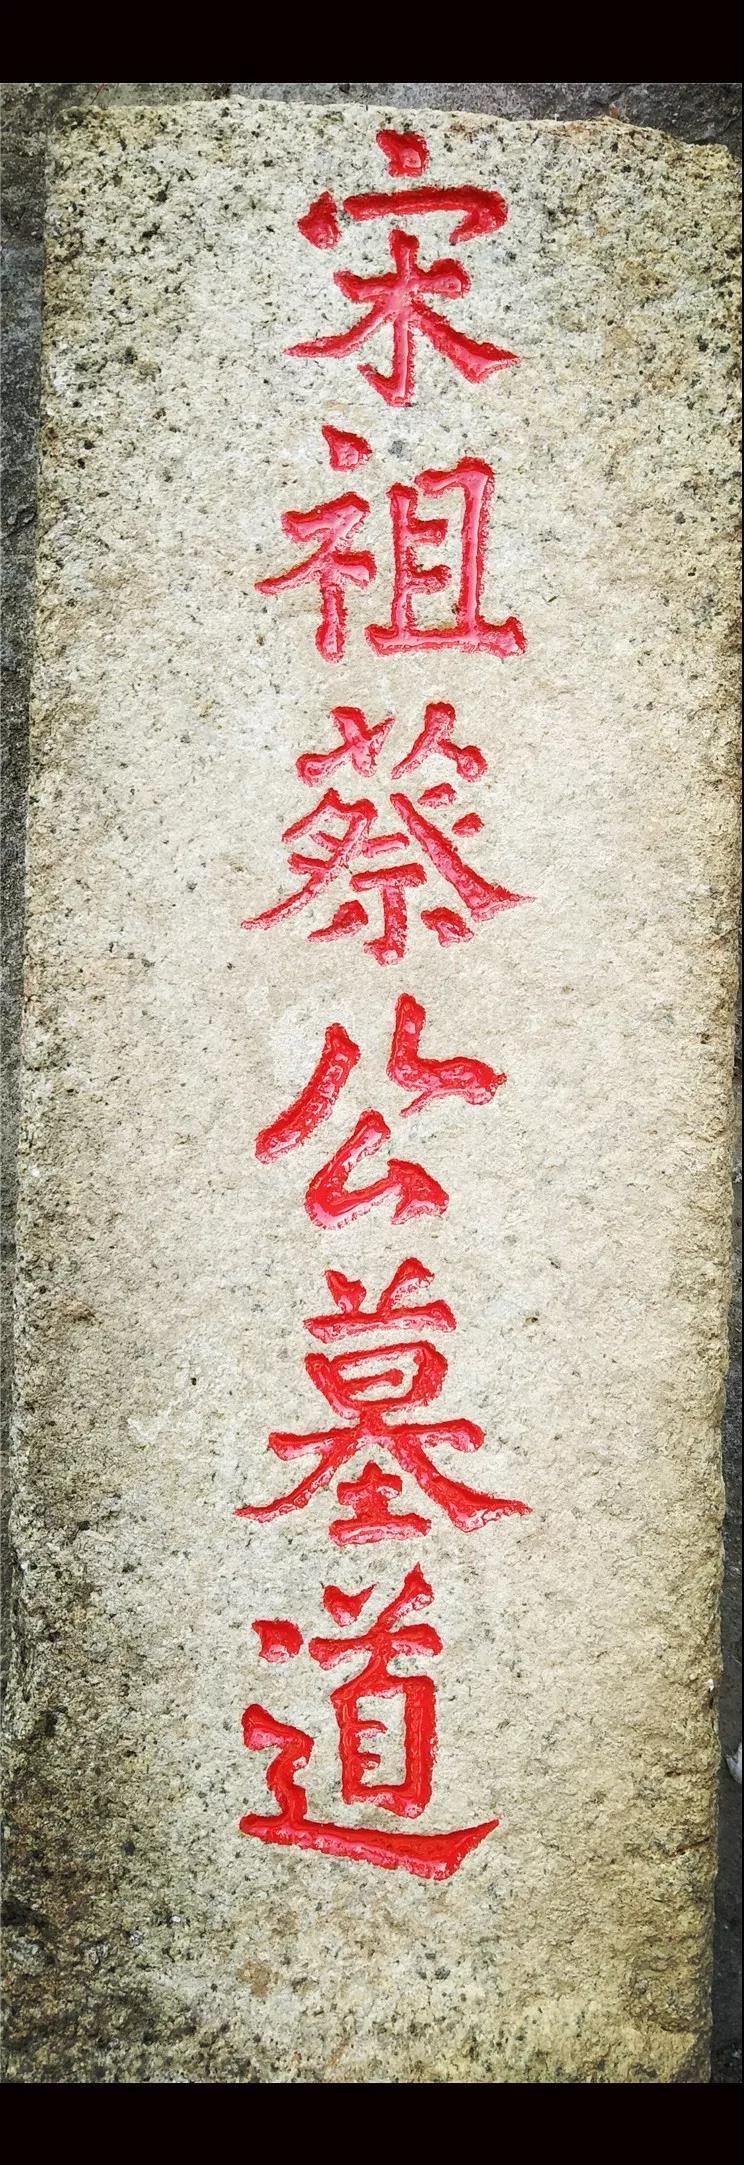 宋祖蔡公墓道